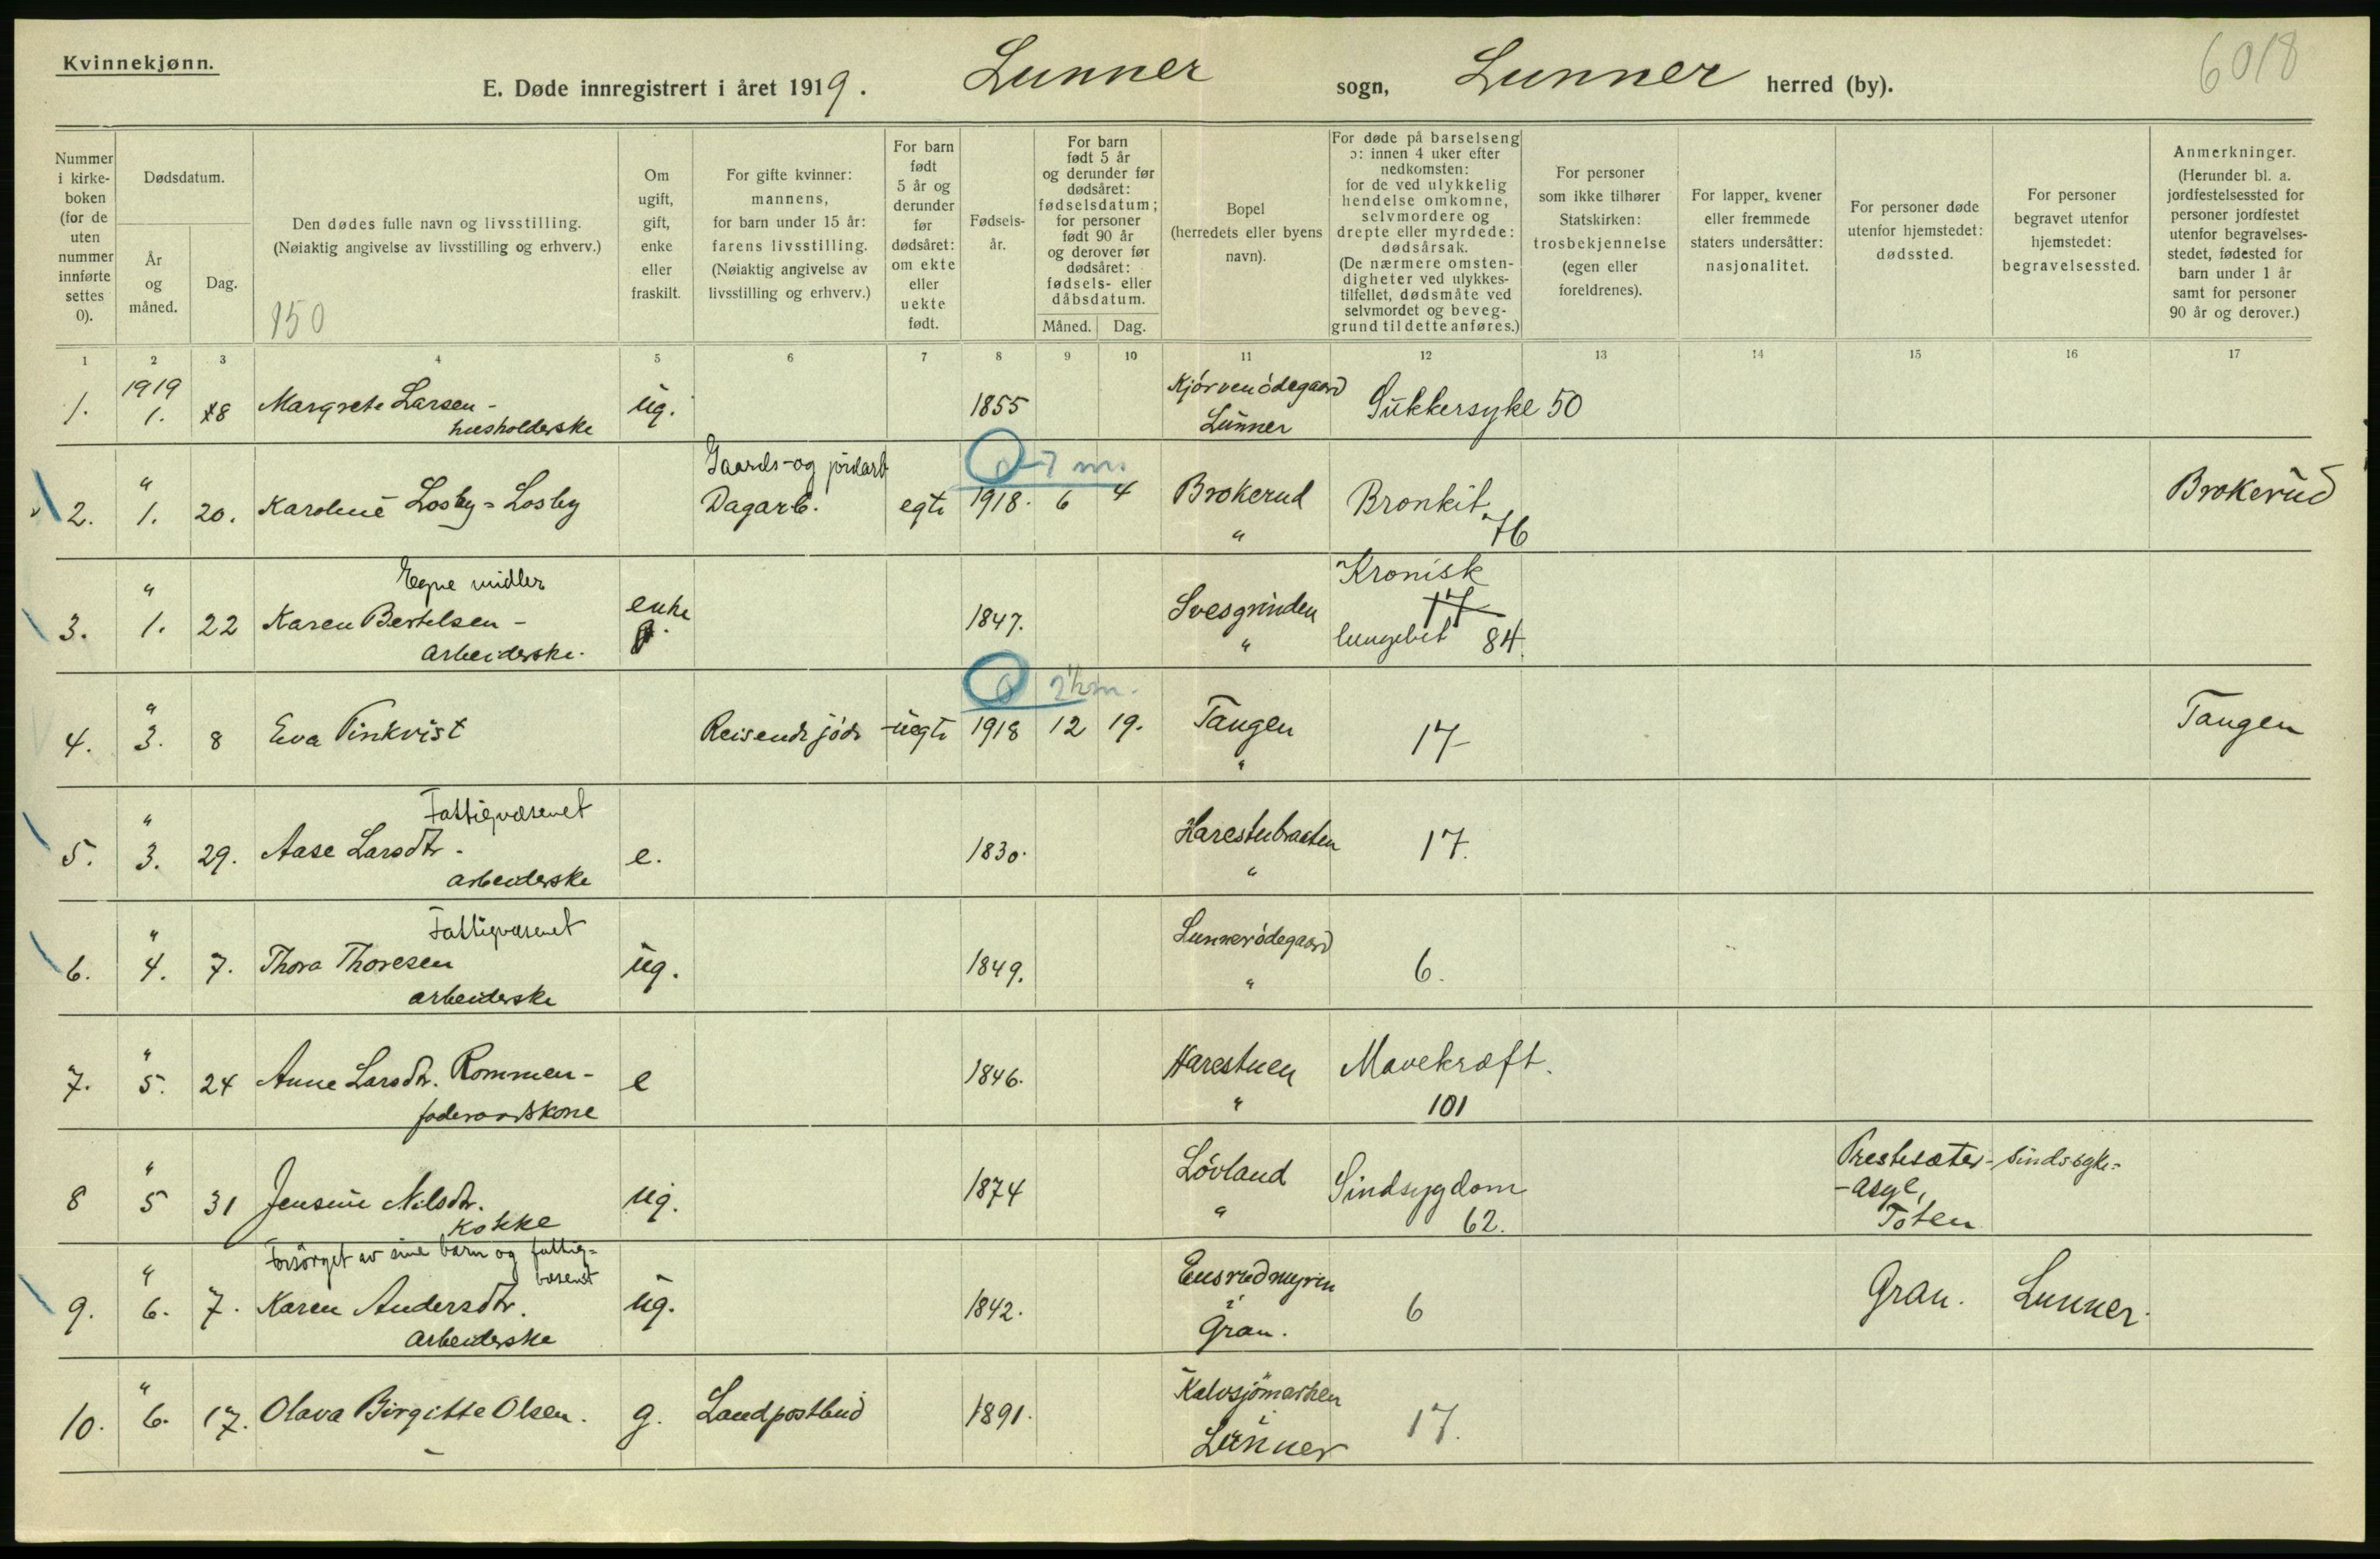 Kvinnekjønn.
6018
E. Døde innregistrert i året 1919. Lunner sogn, Lunner herred (by).
Nummer i kirkeboken (for de uten nummer innførte settes 0).
Dødsdatum.
År og måned.
Dag.
Den dødes fulle navn og livsstilling.
(Nøiaktig angivelse av livsstilling og erhverv.)
150
Om ugift, gift, enke eller fraskilt.
For gifte kvinner: mannens, for barn under 15 år: farens livsstilling. (Nøiaktig angivelse av livsstilling og erhverv.)
For barn født 5 år og derunder før dødsåret: om ekte eller uekte født.
Fødselsår.
For barn født 5 år og derunder før dødsåret: fødselsdatum; for personer født 90 år og derover før dødsåret: fødsels- eller dåbsdatum.
Måned. Dag.
Bopel (herredets eller byens navn).
For døde på barselseng ɔ: innen 4 uker efter nedkomsten: for de ved ulykkelig hendelse omkomne, selvmordere og drepte eller myrdede: dødsårsak. (De nærmere omstendigheter ved ulykkestilfellet, dødsmåte ved selvmordet og beveggrund til dette anføres.)
For personer som ikke tilhører Statskirken: trosbekjennelse (egen eller foreldrenes).
For lapper, kvener eller fremmede staters undersåtter: nasjonalitet.
For personer døde utenfor hjemstedet: dødssted.
For personer begravet utenfor hjemstedet: begravelsessted.
Anmerkninger. (Herunder bl. a. jordfestelsessted for personer jordfestet utenfor begravelsesstedet, fødested for barn under 1 år samt for personer 90 år og derover.)
1 2 3 4 5 6 7 8 9 10 11 12 13 14 15 16 17
1919 Kjörvenödegaard
1. 1. 18 Margrete Larsen - ug. 1855 Sukkersyke 50
husholderske Lunner
" Gaards- og jordarb 0 - 7 m.
2. 1. 20. Karoline Losby - Losby Dagarb. egte 1918. 6 4 Brokerud Bronkit Brokerud
" 76
" Egne midler enke Kronisk
3. 1. 22 Karen Bertelsen - 1847. Svesgrinden 17
arbeiderske. " lungebet 84.
" 0 2½m.
4. 3. 8 Eva Finkvist Reisende jöde uegte 1918 12 19. Tangen 17 Tangen
"
" Fattigvæsenet
5. 3. 29. Aase Larsdtr. e. 1830. Harestubraaten 17.
arbeiderske "
" Fattigvæsenet Lunnerödegaard
6. 4. 7. Thora Thoresen ug. 1849. 6.
arbeiderske "
"
7. 5. 24 Anne Larsdtr. Rommen - e 1846. Harestuen Mavekræft.
foderaadskone " 101
" Prestesæter-sindssyke-
8 5 31 Jensine Nilsdtr. ug. 1874 Lövland Sindsygdom -asyl,
Kokke " 62. Toten
" Forsörget av sine barn og fattig-
væsenet Eusrudmyren
9. 6. 7. Karen Andersdtr. ug. 1842. i 6 Gran. Lunner.
arbeiderske Gran.
" Kalvsjömarken
10. 6. 17. Olava Birgitte Olsen. g. Landpostbud 1891. i 17.
Lunner